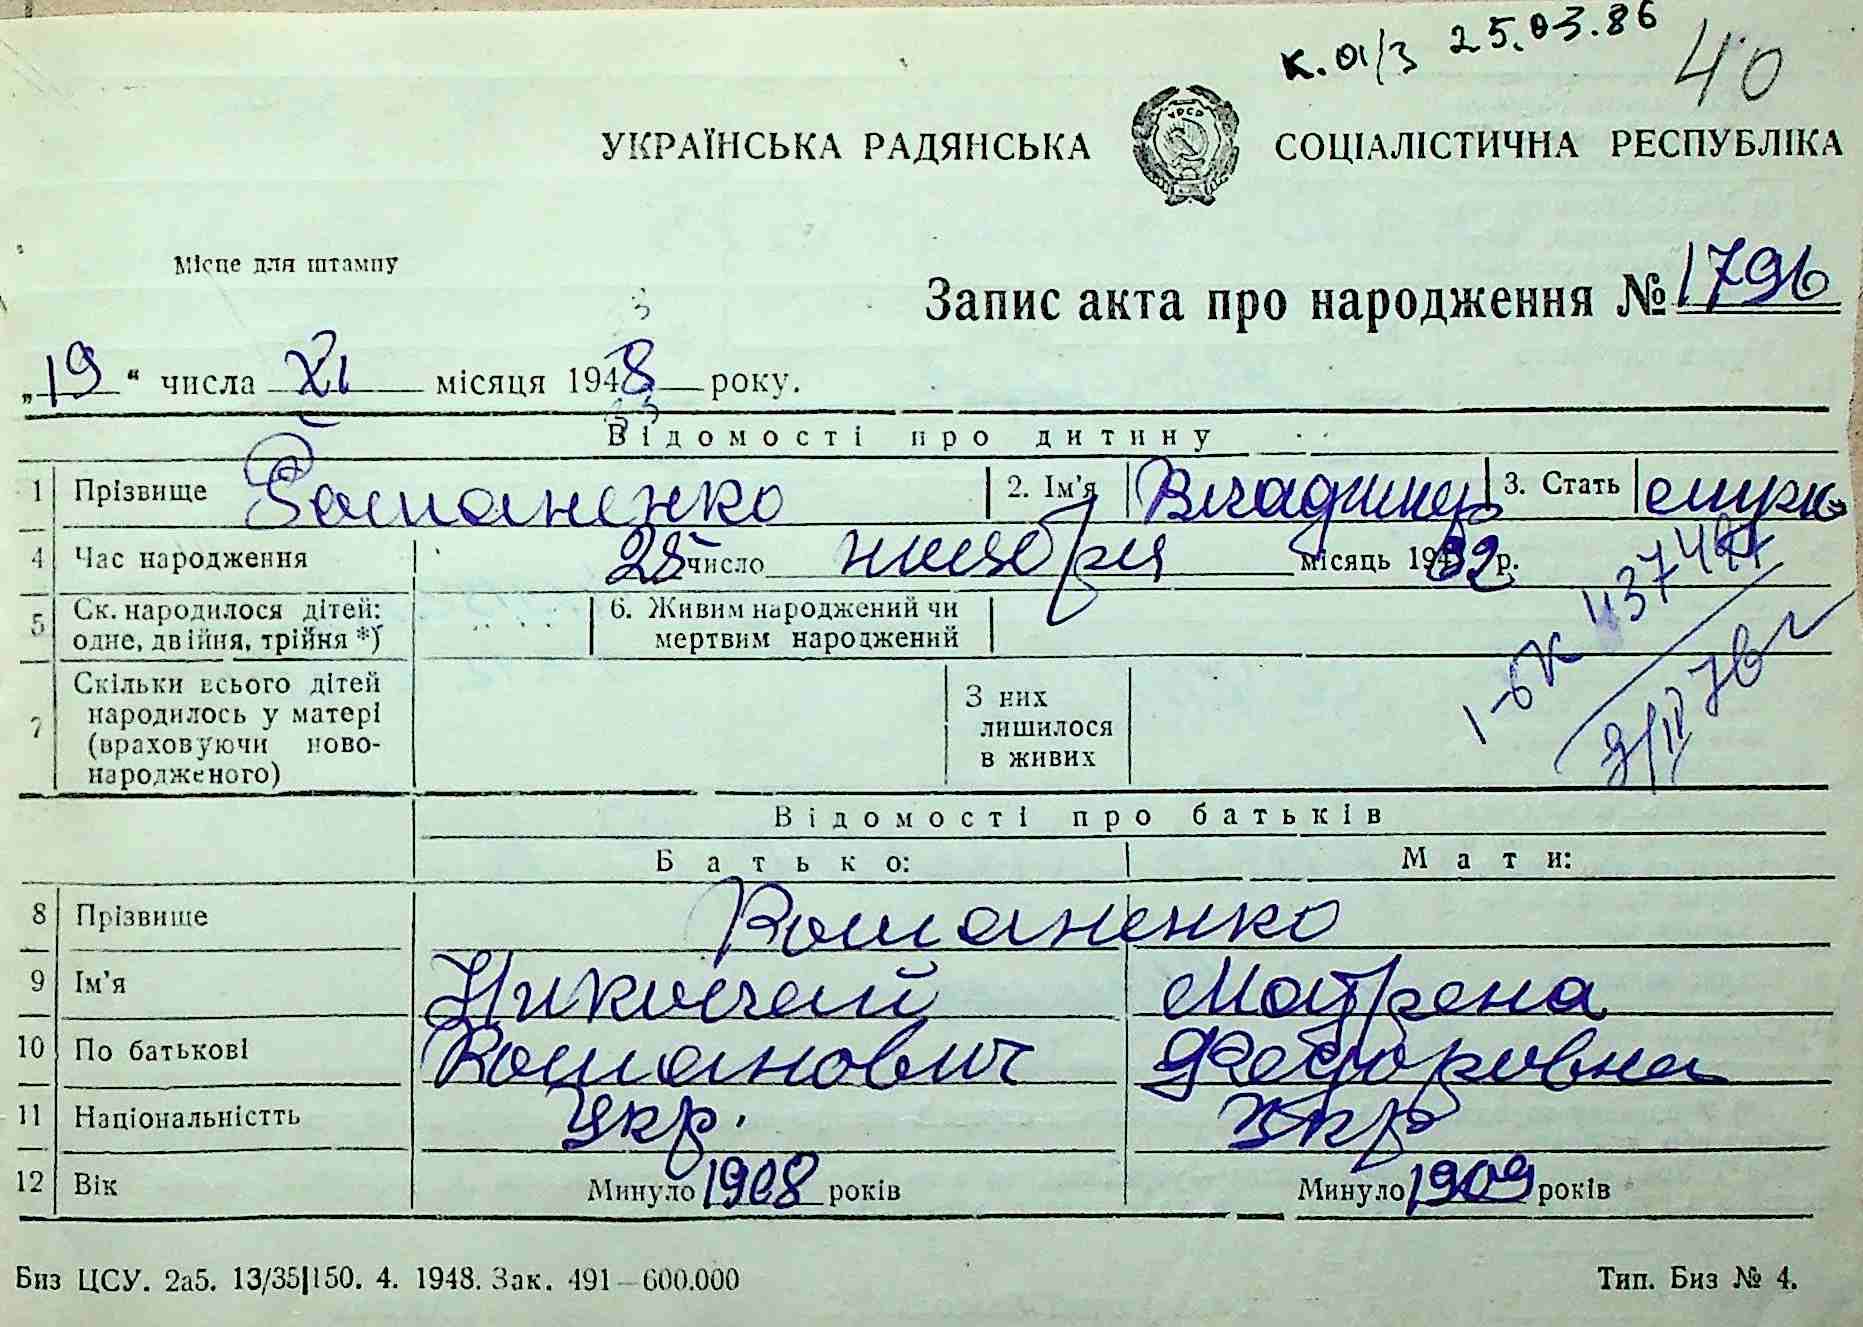 к. 01/3 25.03.86
40
УКРАЇНСЬКА РАДЯНСЬКА СОЦІАЛІСТИЧНА РЕСПУБЛІКА
УРСР
Місце для штампу
Запис акта про народження № 1796
„19“ числа XI місяця 1948 року.
Відомості про дитину
1 Прізвище Романенко 2. Ім'я Владимир 3. Стать
4 Час народження 25 число ноября місяць 1932 р.
5 Ск. народилося дітей: одне, двійня, трійня *) 6. Живим народжений чи мертвим народжений
7 Скільки всього дітей народилось у матері (враховуючи ново-народженого) З них лишилося в живих
Відомості про батьків
Батько: Мати:
8 Прізвище Романенко
9 Ім'я Николай Матрена
10 По батькові Романович Федоровна
11 Національністть Укр. Укр
12 Вік Минуло 1908 років Минуло 1909 років
Биз ЦСУ. 2а5. 13/35|150. 4. 1948. Зак. 491—600.000 Тип. Биз № 4.